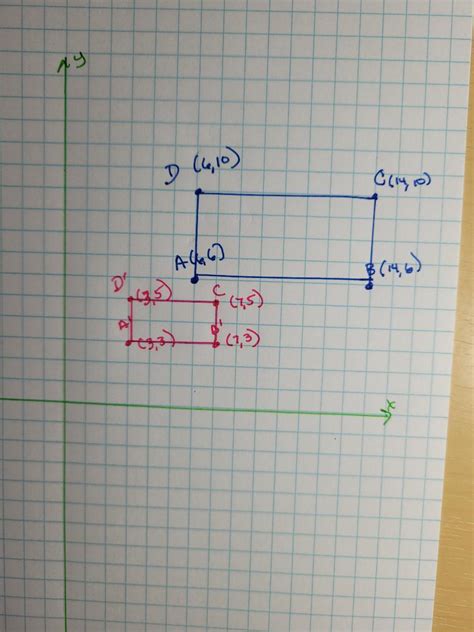 y
D (6,10)
C (14,10)
A (6,6)
B (14,6)
D' (3,5)
C (7,5)
A' (3,3)
B' (7,3)
x